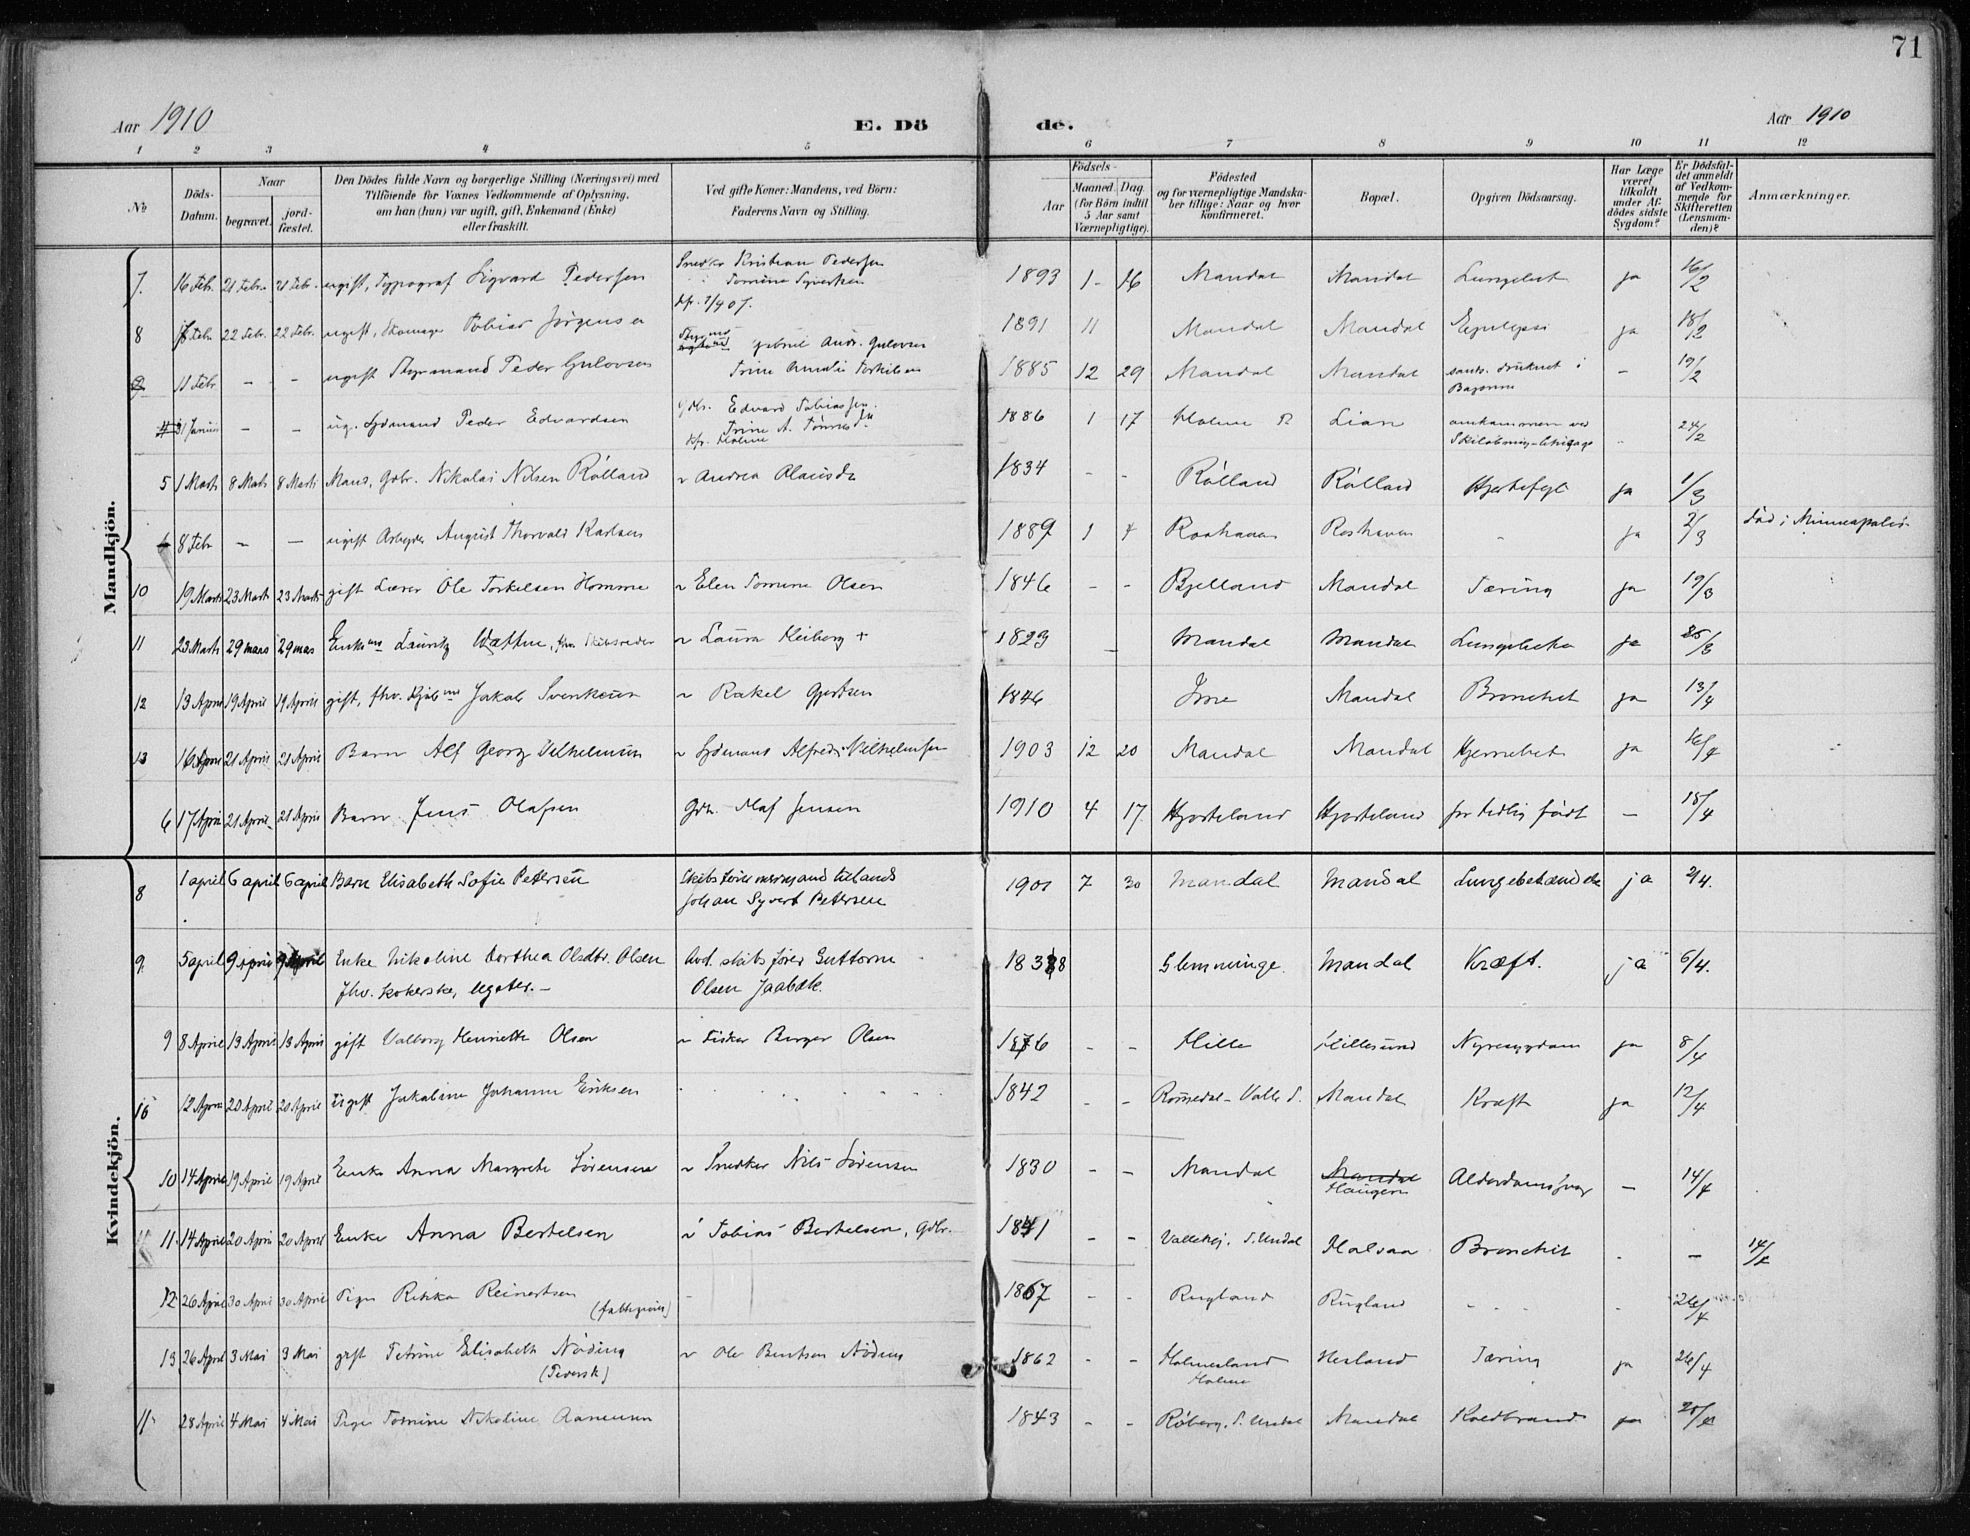 71
Aar 1910
E. Dö de.
Aar 1910
1 2 3 4 5 6 7 8 9 10 11 12
No
Döds-Datum.
Naar
begravet.
jord-fæstet.
Den Dödes fulde Navn og borgerlige Stilling (Næringsvei) med
Tilföiende for Voxnes Vedkommende af Oplysning,
om han (hun) var ugift, gift, Enkemand (Enke)
eller fraskilt.
Ved gifte Koner: Mandens, ved Börn:
Faderens Navn og Stilling.
Födsels-
Aar
Maaned. Dag.
(for Börn indtil
5 Aar samt
Værnepligtige).
Födested
og for værnepligtige Mandska-
ber tillige: Naar og hvor
Konfirmeret.
Bopæl.
Opgiven Dödsaarsag.
Har Læge
været
tilkaldt
under Af-
dödes sidste
Sygdom?
Er Dödsfal-
det anmeldt
af Vedkom-
mende for
Skifteretten
(Lensman-
den)?
Anmærkninger.
Mandkjön.
7. 16 Febr. 21 Febr. 21 Febr. ugift, Typograf Sigvard Pedersen Snedker Kristian Pedersen 1893 1 16 Mandal Mandal Lungebet ja 16/2
8 Febr 22 Febr. 22 Febr. ugift, Tobias Jørgensen 1891 11 Mandal Mandal Epilepsi ja 18/2
9 11 Febr - - ugift Styrmand Peder Gulovsen Gabriel Andr. Gulovsen 1885 12 29 Mandal Mandal druknet i - 19/2
Trine Amalie Torkilsen
31 Januar - - ug. Sømand Peder Edvardsen Gdbr. Edvard Tobiassen 1886 1 17 Holme Lian omkommen ved 24/2
Trine A.
Holme
5 1 Marts 8 Marts 8 Marts Mand, Gdbr. Nikolai Nilsen Rølland Andrea Olausdr 1834 - - Rølland Rølland Hjertefejl ja 1/3
6 8 Febr - - ugift Arbejder August Thorvald Karlsen 1889 1 4 Roshaven ja 2/3 død i Minneapolis
10 19 Marts 23 Marts 23 Marts gift Lærer Ole Torkelsen Homme Elen Tomine Olsen 1846 - - Bjelland Mandal Tæring ja 19/3
11 23 Marts 29 mars 29 mars Enkemd Lauritz fhv. Skibsreder Laura Heiberg + 1823 - Mandal Mandal ja 25/3
12 13 April 19 April 19 April gift, fhv. Jakob Svenksen Rakel Gjertsen 1846 Mandal Bronchit ja 13/4
13 16 April 21 April 21 April Barn Alf Georg Vilhelmsen Sømand Alfred Vilhelmsen 1903 12 20 Mandal Mandal Hjernebet ja 16/4
6 17 April 21 April 21 April Barn Jens Olafsen Gdb. Olaf Jensen 1910 4 17 Hjorteland Hjorteland for tidlig født - 18/4
Kvindekjön.
8 1 april 6 april 6 april Barn Elisabeth Sofie Pettersen Skibsfører 1901 7 30 Mandal Mandal ja 2/4.
Johan Syvert Pettersen
9. 5 april 9 april 9 April Enke Nikoline Dorthea Olsdtr. Olsen Avd. skibsfører Guttorm 1838 Glemminge. Mandal Kræft. ja 6/4.
fhv. kokerske, ugter. - Olsen Jaabæk.
9 8 April 13 April 13 April gift Valborg Henriette Olsen Fisker Berger Olsen 1876 - - Hille Hillesund Nyresygdom ja 8/4
10 12 April 20 April 20 April ugift Jakobine Johanne Eriksen 1842 - - Romsdal - Valle S. Mandal Kræft ja 12/4
10 14 April 19 April 19 April Enke Anna Margrete Sørensen Snedker Nils Sørensen 1830 - - Mandal Mandal Alderdomssvag - 14/4
Haugen
11 14 April 20 April 20 April Enke Anna Bertelsen Tobias Bertelsen, Gdbr. 1841 - - S. Undal Halsaa Bronchit - 14/4
12 26 April 30 April 30 April Pige Rikka Reinertsen - 1867 - - Rugland Rugland 26/4
13 26 April 3 Mai 3 Mai gift Petrine Elisabeth Nøding Ole Bentsen Nøding 1862 - - Holmesland Hesland Tæring ja 26/4
Holme
11 28 April 4 Mai 4 Mai Pige Tomine Nikoline Aanensen 1843 - - Røberg, S. Undal Mandal Koldbrand ja